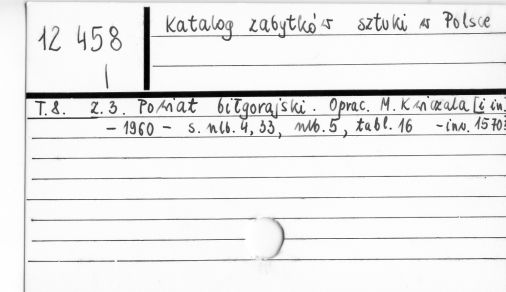 12 458
Katalog zabytków sztuki w Polsce
T.8. Z.3. Powiat biłgorajski. Oprac. M. Kwiczala [i in
– 1960 – s. nlb. 4, 33, nlb. 5, tabl. 16 – inw. 1570